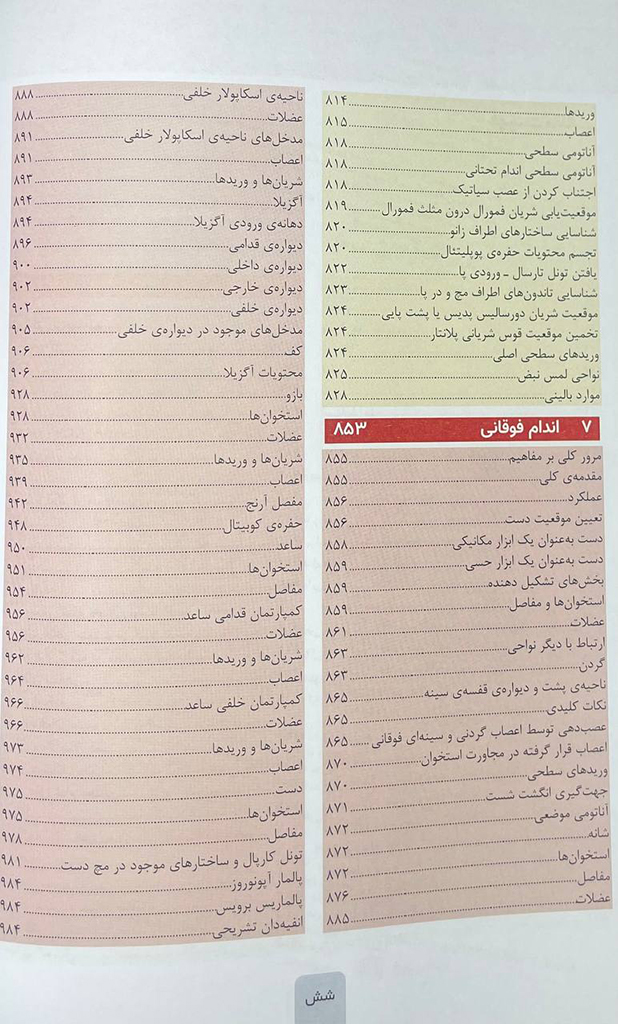 وریدها ۸۱۴
اعصاب ۸۱۵
آناتومی سطحی ۸۱۸
آناتومی سطحی اندام تحتانی ۸۱۸
اجتناب کردن از عصب سیاتیک ۸۱۸
موقعیت‌یابی شریان فمورال درون مثلث فمورال ۸۱۹
شناسایی ساختارهای اطراف زانو ۸۲۰
تجسم محتویات حفره‌ی پوپلیتئال ۸۲۰
یافتن تونل تارسال ـ ورودی پا ۸۲۲
شناسایی تاندون‌های اطراف مچ و در پا ۸۲۳
موقعیت شریان دورسالیس پدیس یا پشت پایی ۸۲۴
تخمین موقعیت قوس شریانی پلانتار ۸۲۴
وریدهای سطحی اصلی ۸۲۴
نواحی لمس نبض ۸۲۵
موارد بالینی ۸۲۸
۷ اندام فوقانی ۸۵۳
مرور کلی بر مفاهیم ۸۵۵
مقدمه‌ی کلی ۸۵۵
عملکرد ۸۵۶
تعیین موقعیت دست ۸۵۶
دست به‌عنوان یک ابزار مکانیکی ۸۵۸
دست به‌عنوان یک ابزار حسی ۸۵۹
بخش‌های تشکیل دهنده ۸۵۹
استخوان‌ها و مفاصل ۸۵۹
عضلات ۸۶۱
ارتباط با دیگر نواحی ۸۶۳
گردن ۸۶۳
ناحیه‌ی پشت و دیواره‌ی قفسه‌ی سینه ۸۶۵
نکات کلیدی ۸۶۵
عصب‌دهی توسط اعصاب گردنی و سینه‌ای فوقانی ۸۶۵
اعصاب قرار گرفته در مجاورت استخوان ۸۷۰
وریدهای سطحی ۸۷۰
جهت‌گیری انگشت شست ۸۷۱
آناتومی موضعی ۸۷۲
شانه ۸۷۲
استخوان‌ها ۸۷۲
مفاصل ۸۷۶
عضلات ۸۸۵
ناحیه‌ی اسکاپولار خلفی ۸۸۸
عضلات ۸۸۸
مدخل‌های ناحیه‌ی اسکاپولار خلفی ۸۹۱
اعصاب ۸۹۱
شریان‌ها و وریدها ۸۹۳
آگزیلا ۸۹۴
دهانه‌ی ورودی آگزیلا ۸۹۴
دیواره‌ی قدامی ۸۹۶
دیواره‌ی داخلی ۹۰۰
دیواره‌ی خارجی ۹۰۲
دیواره‌ی خلفی ۹۰۲
مدخل‌های موجود در دیواره‌ی خلفی ۹۰۵
کف ۹۰۶
محتویات آگزیلا ۹۰۶
بازو ۹۲۸
استخوان‌ها ۹۲۸
عضلات ۹۳۲
شریان‌ها و وریدها ۹۳۵
اعصاب ۹۳۹
مفصل آرنج ۹۴۲
حفره‌ی کوبیتال ۹۴۸
ساعد ۹۵۰
استخوان‌ها ۹۵۱
مفاصل ۹۵۴
کمپارتمان قدامی ساعد ۹۵۶
عضلات ۹۵۶
شریان‌ها و وریدها ۹۶۲
اعصاب ۹۶۴
کمپارتمان خلفی ساعد ۹۶۶
عضلات ۹۶۶
شریان‌ها و وریدها ۹۷۳
اعصاب ۹۷۴
دست ۹۷۵
استخوان‌ها ۹۷۵
مفاصل ۹۷۸
تونل کارپال و ساختارهای موجود در مچ دست ۹۸۱
پالمار آپونوروز ۹۸۴
پالماریس برویس ۹۸۴
انفیه‌دان تشریحی ۹۸۴
شش